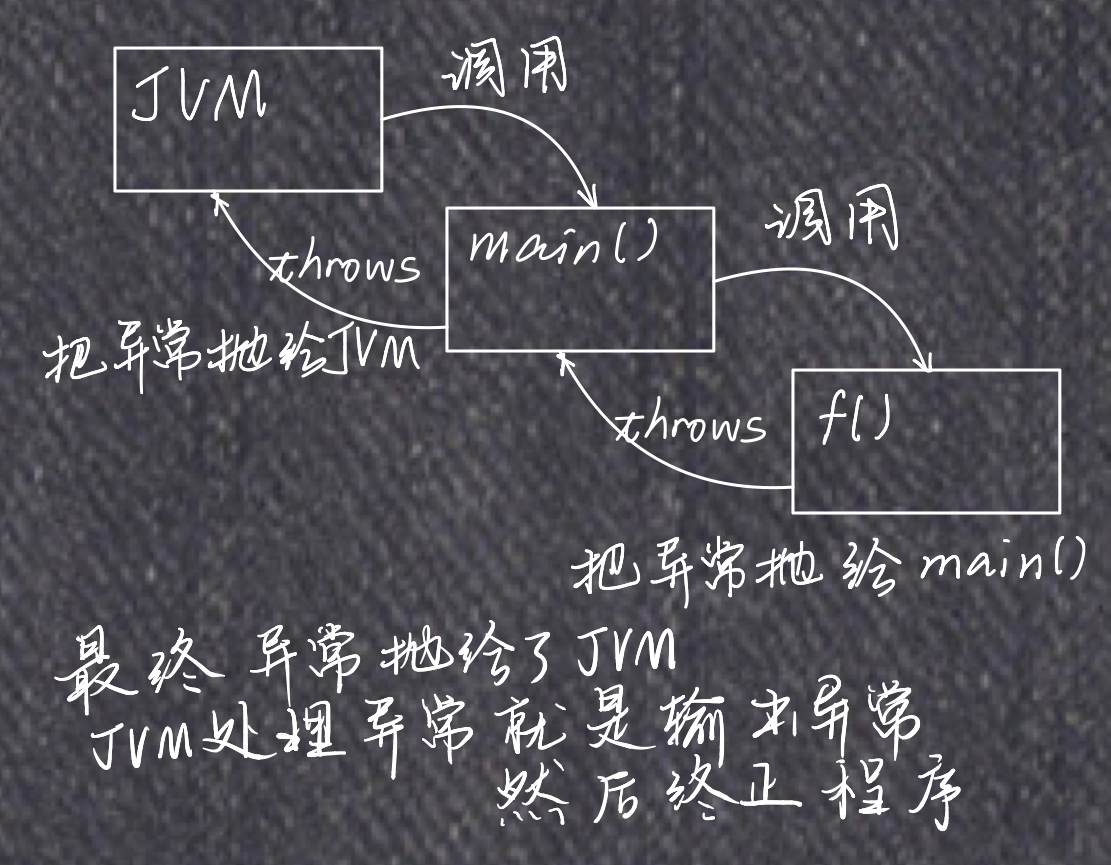 JVM
调用
main()
调用
throws
把异常抛给JVM
f()
throws
把异常抛给main()
最终异常抛给了JVM
JVM处理异常就是输出异常
然后终止程序